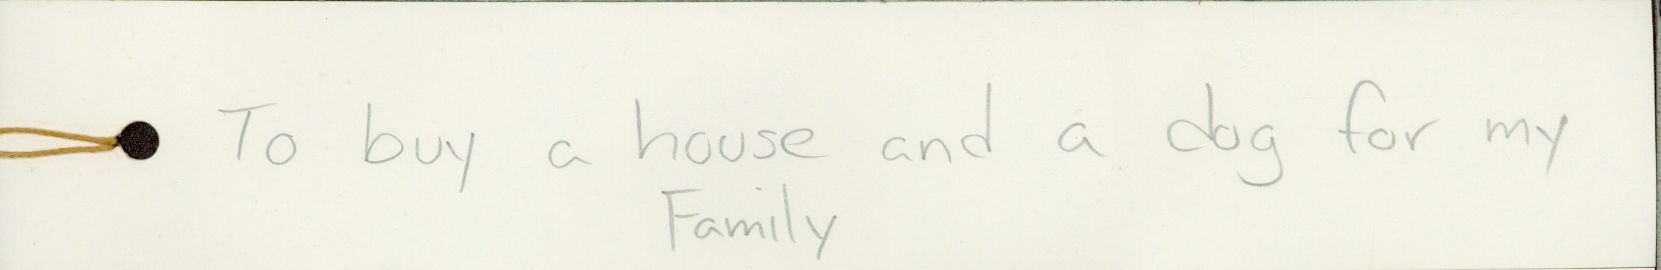 To buy a house and a dog for my
Family